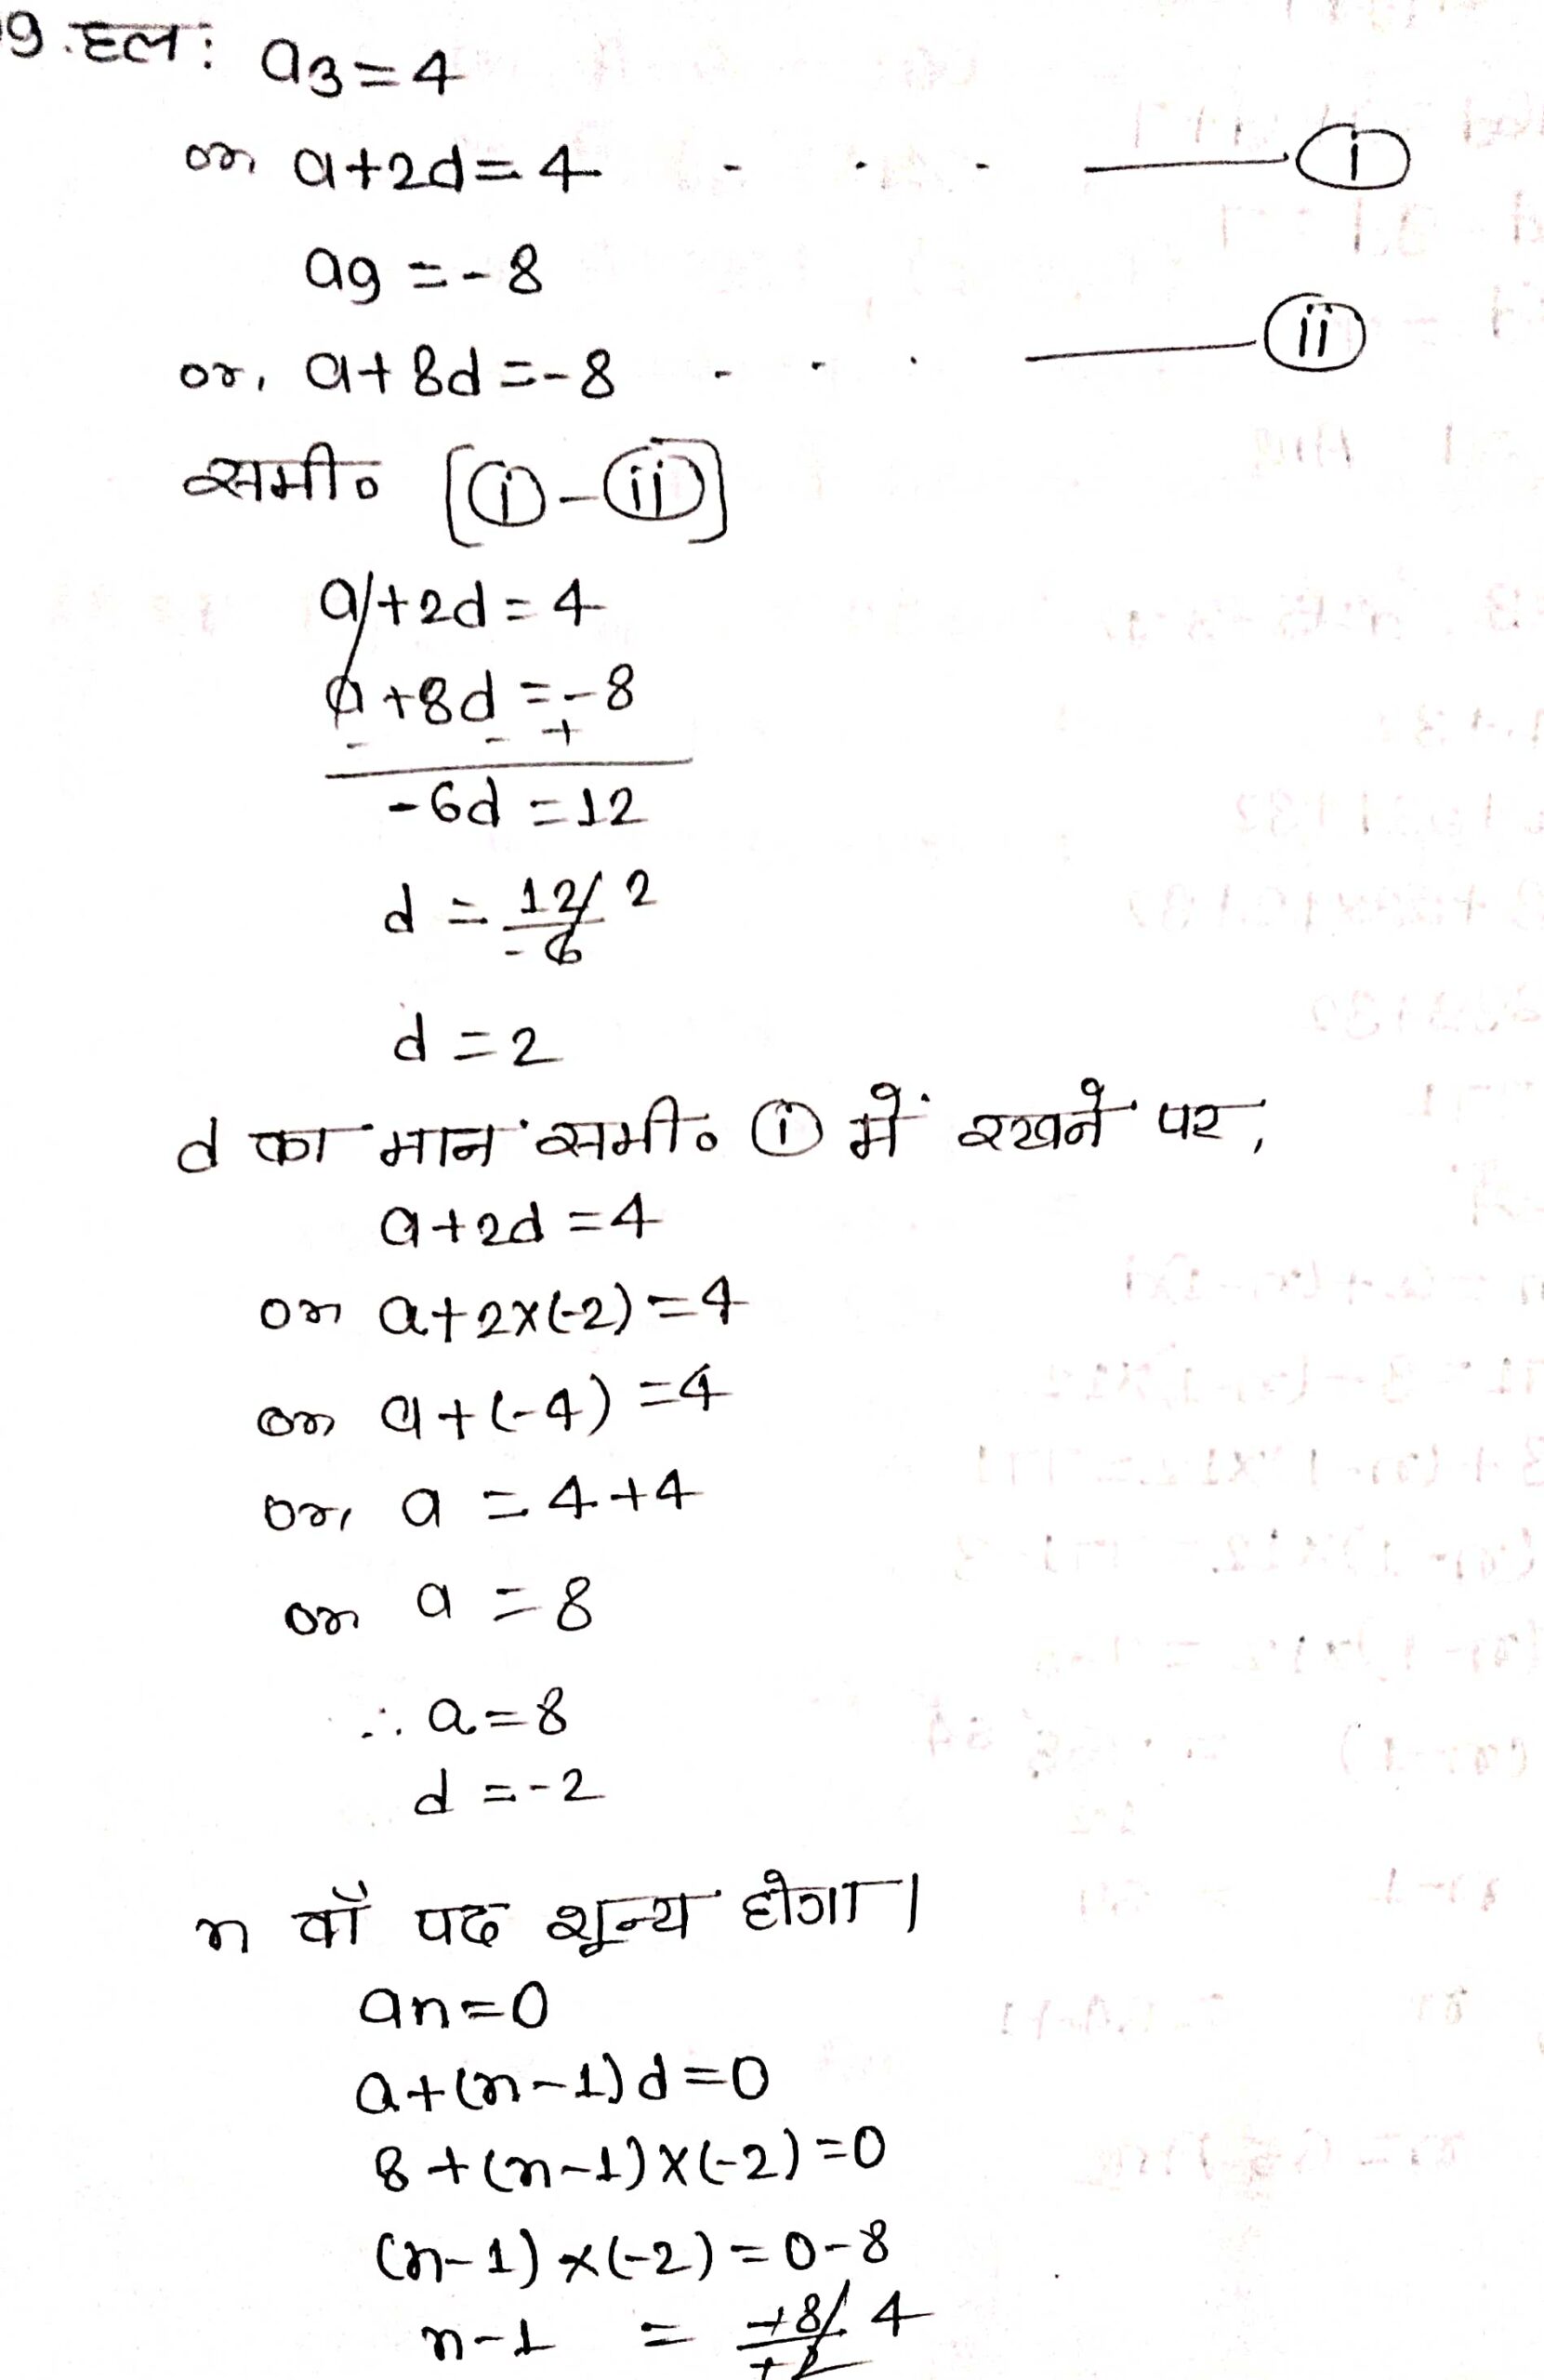 9. हल: a3=4
or a+2d=4 - . - ——— i
a9=-8
or, a+8d=-8 - . . ——— ii
समी० [i-ii]
a+2d=4
a+8d=-8
- - +
-6d=12
d = 12/-6 2
d=2
d का मान समी० i में रखने पर,
a+2d=4
or a+2x(-2)=4
or a+(-4)=4
or, a=4+4
or a=8
∴ a=8
d=-2
n वाँ पद शून्य होगा।
an=0
a+(n-1)d=0
8+(n-1)x(-2)=0
(n-1)x(-2)=0-8
n-1 = +8/+2 4